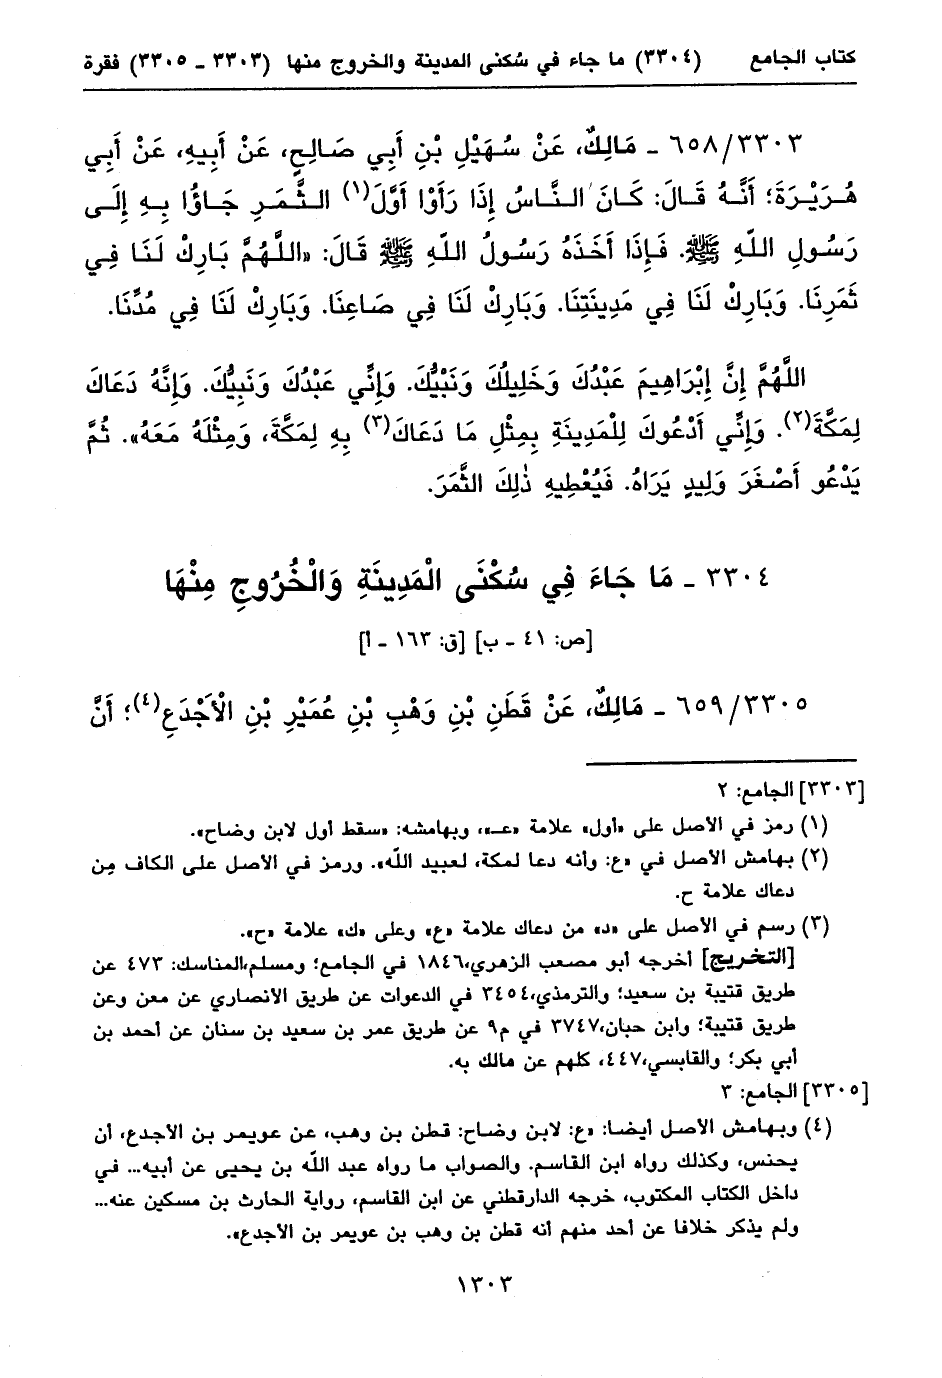 كتاب الجامع (٣٣٠٤) ما جاء في سُكنى المدينة والخروج منها (٣٣٠٣ - ٣٣٠٥) فقرة
٦٥٨/٣٣٠٣ - مَالِكٌ، عَنْ سُهَيْلِ بْنِ أَبِي صَالِحٍ، عَنْ أَبِيهِ، عَنْ أَبِي
هُرَيْرَةَ؛ أَنَّهُ قَالَ: كَانَ النَّاسُ إِذَا رَأَوْا أَوَّلَ(١) الثَّمَرِ جَاؤُا بِهِ إِلَى
رَسُولِ اللّهِ ﷺ. فَإِذَا أَخَذَهُ رَسُولُ اللّهِ ﷺ قَالَ: «اللَّهُمَّ بَارِكْ لَنَا فِي
ثَمَرِنَا. وَبَارِكْ لَنَا فِي مَدِينَتِنَا. وَبَارِكْ لَنَا فِي صَاعِنَا. وَبَارِكْ لَنَا فِي مُدِّنَا.
اللَّهُمَّ إِنَّ إِبْرَاهِيمَ عَبْدُكَ وَخَلِيلُكَ وَنَبِيُّكَ. وَإِنِّي عَبْدُكَ وَنَبِيُّكَ. وَإِنَّهُ دَعَاكَ
لِمَكَّةَ(٢). وَإِنِّي أَدْعُوكَ لِلْمَدِينَةِ بِمِثْلِ مَا دَعَاكَ(٣) بِهِ لِمَكَّةَ، وَمِثْلَهُ مَعَهُ». ثُمَّ
يَدْعُو أَصْغَرَ وَلِيدٍ يَرَاهُ. فَيُعْطِيهِ ذٰلِكَ الثَّمَرَ.
٣٣٠٤ - مَا جَاءَ فِي سُكْنَى الْمَدِينَةِ وَالْخُرُوجِ مِنْهَا
[ص: ٤١ - ب] [ق: ١٦٣ - أ]
٦٥٩/٣٣٠٥ - مَالِكٌ، عَنْ قَطَنِ بْنِ وَهْبِ بْنِ عُمَيْرِ بْنِ الْأَجْدَعِ(٤)؛ أَنَّ
[٣٣٠٣] الجامع: ٢
(١) رمز في الأصل على «أول» علامة «عـ»، وبهامشه: «سقط أول لابن وضاح».
(٢) بهامش الأصل في «ع: وأنه دعا لمكة، لعبيد الله». ورمز في الأصل على الكاف مِن
دعاك علامة ح.
(٣) رسم في الأصل على «د» من دعاك علامة «ع» وعلى «ك» علامة «ح».
[التخريج] أخرجه أبو مصعب الزهري،١٨٤٦ في الجامع؛ ومسلم،المناسك: ٤٧٣ عن
طريق قتيبة بن سعيد؛ والترمذي،٣٤٥٤ في الدعوات عن طريق الأنصاري عن معن وعن
طريق قتيبة؛ وابن حبان،٣٧٤٧ في م٩ عن طريق عمر بن سعيد بن سنان عن أحمد بن
أبي بكر؛ والقابسي،٤٤٧، كلهم عن مالك به.
[٣٣٠٥] الجامع: ٣
(٤) وبهامش الأصل أيضا: «ع: لابن وضاح: قطن بن وهب، عن عويمر بن الأجدع، أن
يحنس، وكذلك رواه ابن القاسم. والصواب ما رواه عبد الله بن يحيى عن أبيه... في
داخل الكتاب المكتوب، خرجه الدارقطني عن ابن القاسم، رواية الحارث بن مسكين عنه...
ولم يذكر خلافا عن أحد منهم أنه قطن بن وهب بن عويمر بن الأجدع».
١٣٠٣